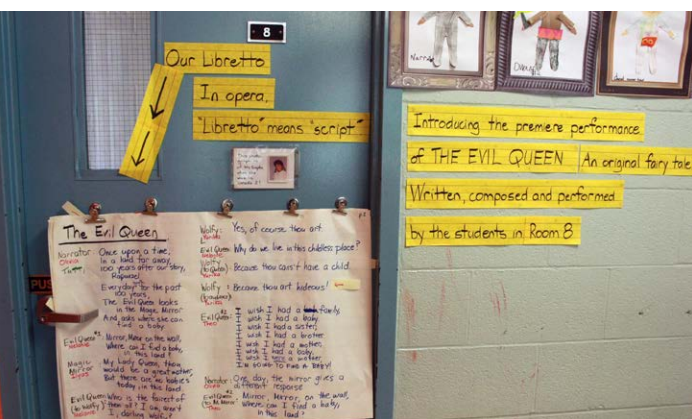 8
Our Libretto
In opera,
"Libretto" means "script"
Introducing the premiere performance
of THE EVIL QUEEN An original fairy tale
Written, composed and performed
by the students in Room 8
PUS
The Evil Queen
Narrator: Once upon a time,
In a land far away,
100 years after our story,
Rapunzel
Everyday for the past
100 years,
The Evil Queen looks
in the Magic Mirror
And asks where she can
find a baby.
Evil Queen: Mirror, Mirror on the wall,
Where can I find a baby,
in this land?
Magic Mirror: My Lady Queen, thou
would be a great mother,
But there are no babies
today, in this land.
Evil Queen Who is the fairest of
them all? I am, aren't
I, darling
Wolfy: Yes, of course thou art.
Evil Queen: Why do we live in this childless place?
Wolfy (to Queen): Because thou can't have a child.
Wolfy: Because thou art hideous!
Evil Queen: I wish I had a family,
I wish I had a baby,
I wish I had a sister,
I wish I had a brother
I wish I had a mother,
I wish I had a baby,
I wish I were a mother,
I'm GOING TO FIND A BABY!
Narrator: One day, the mirror gives a
different response
Evil Queen Mirror, Mirror, on the wall,
Where can I find a baby,
in this land?